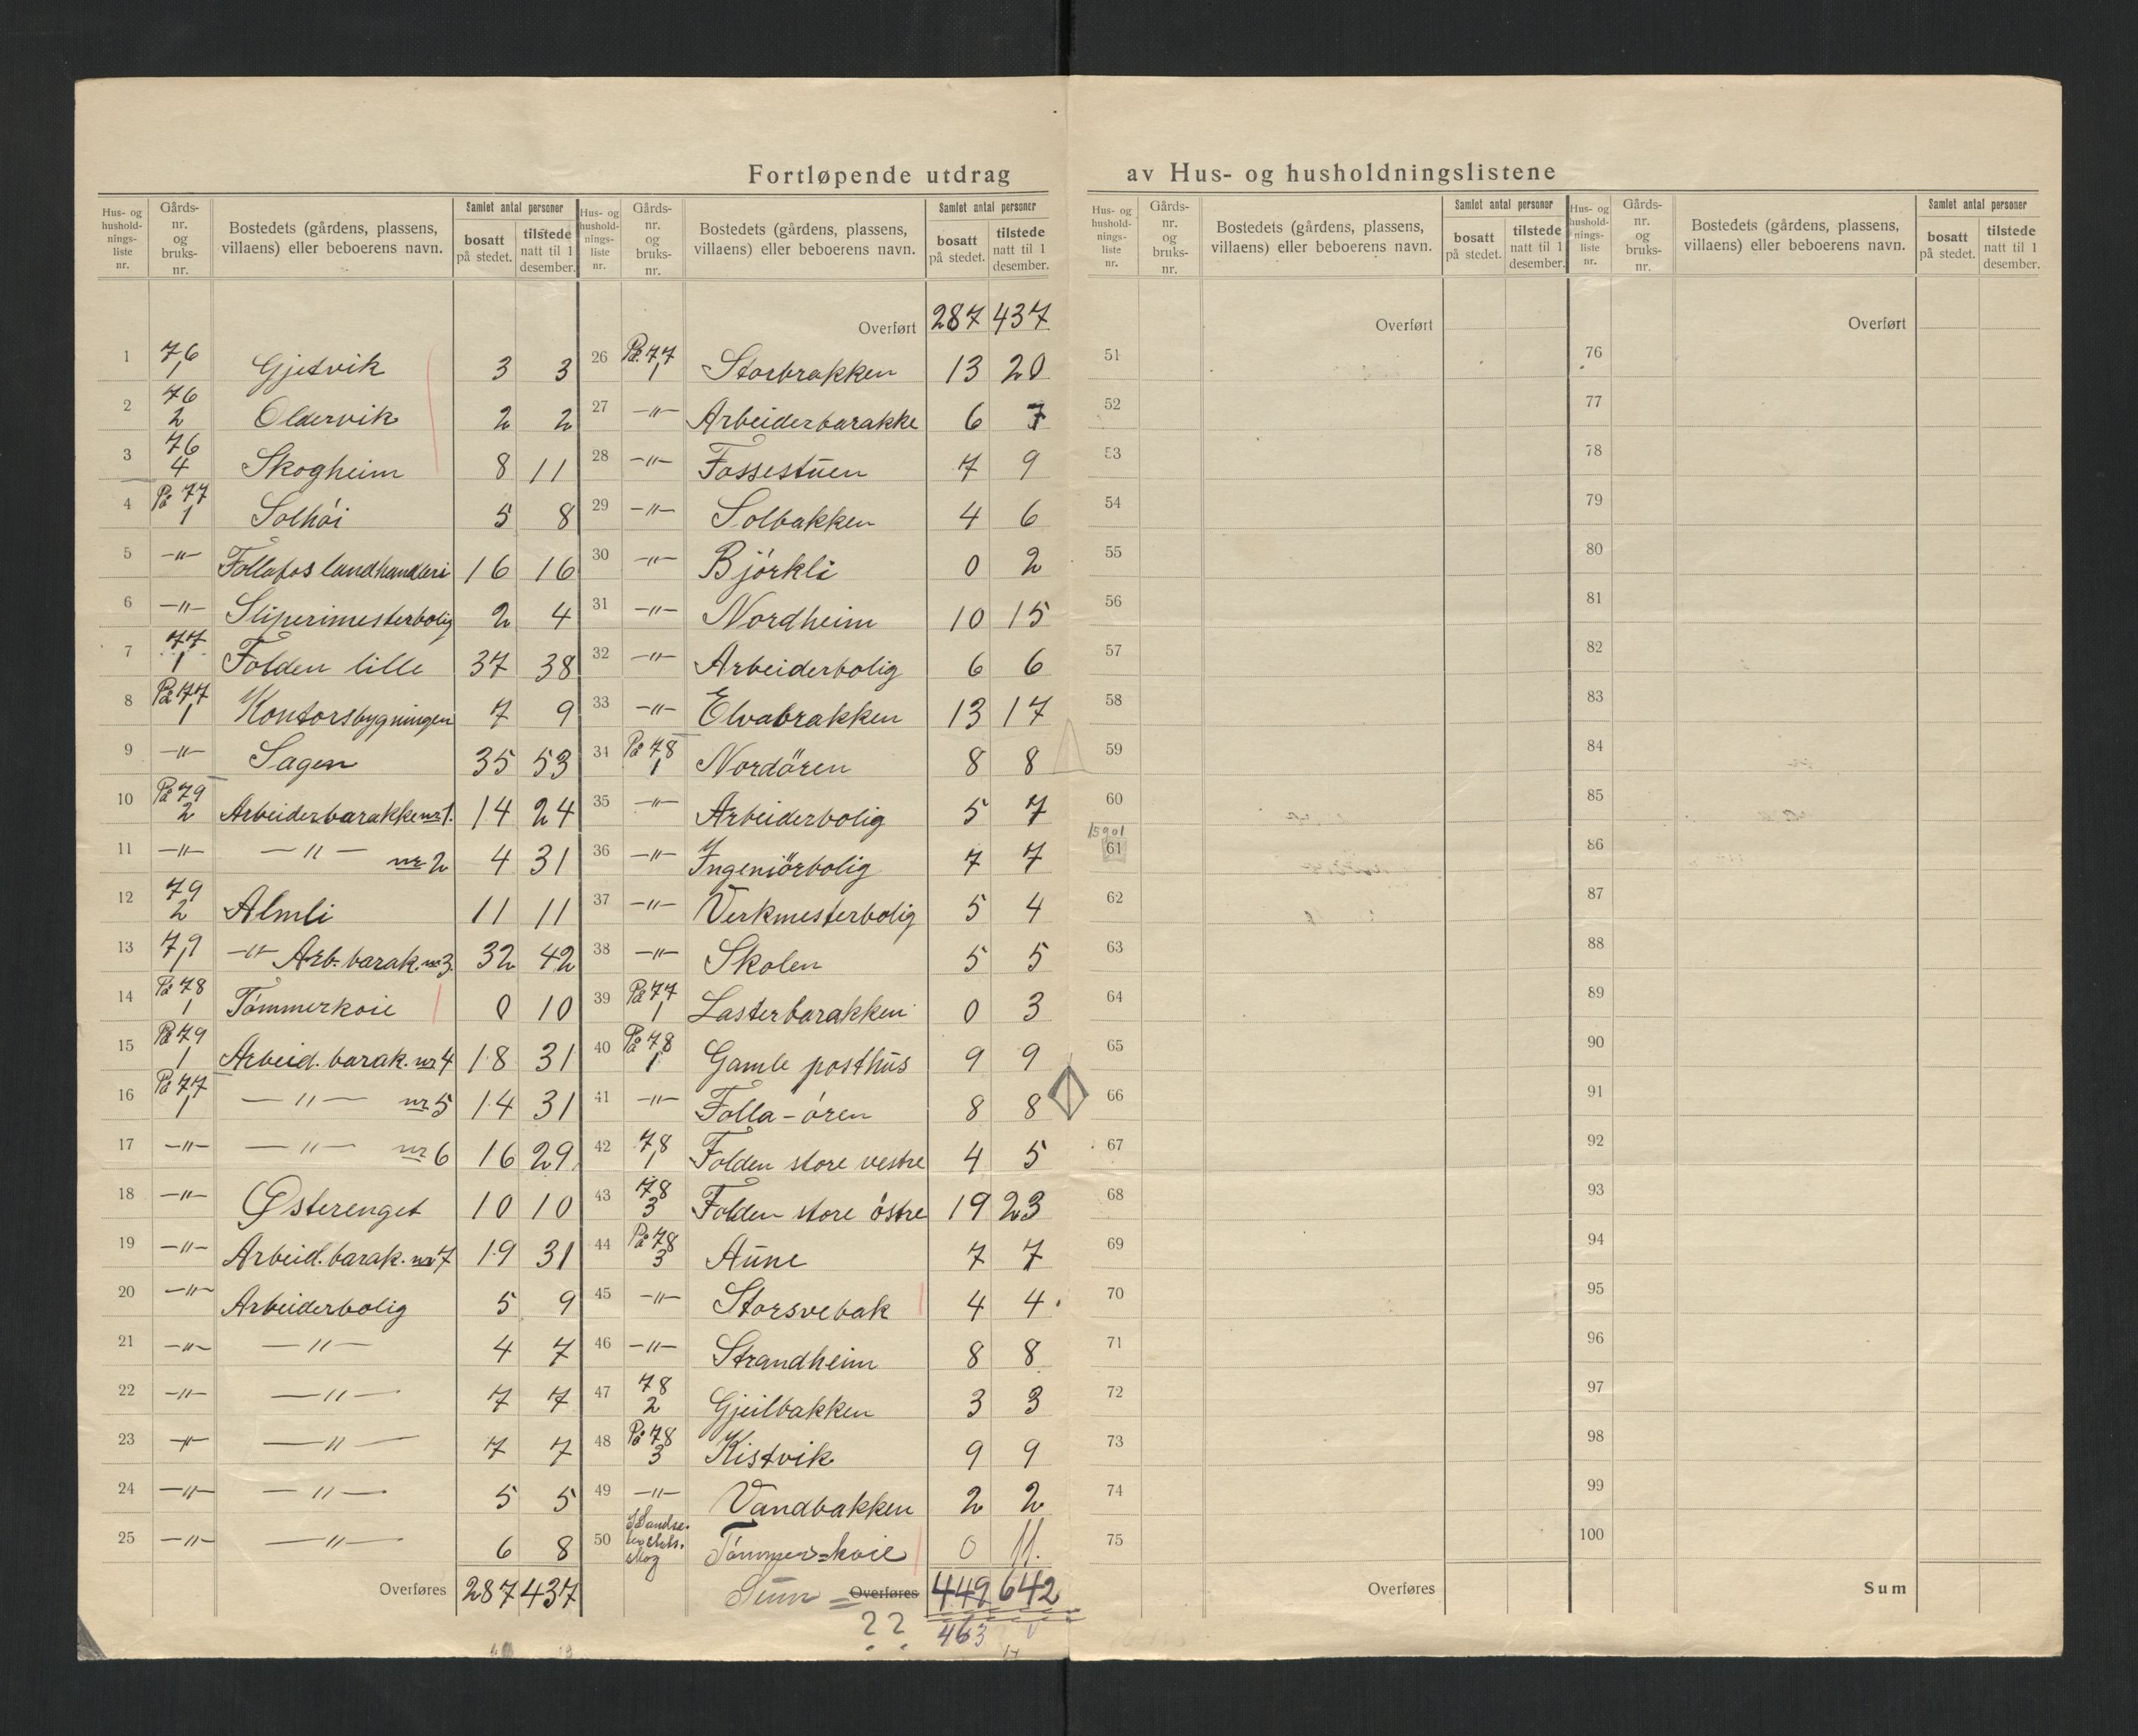 Fortløpende utdrag av Hus- og husholdningslistene
Hus- og hushold- nings- liste nr. | Gårds- nr. og bruks- nr. | Bostedets (gårdens, plassens, villaens) eller beboerens navn. | Samlet antal personer | bosatt på stedet. | tilstede natt til 1 desember.
1 76,1 Gjetvik 3 3
2 76 2 Oldervik 2 2
3 76 4 Skogheim 8 11
4 På 77 1 Solhöi 5 8
5 -"- Follafos landhandleri 16 16
6 -"- Sliperimesterbolig 2 4
7 77 1 Folden lille 37 38
8 På 77 1 Kontorsbygningen 7 9
9 -"- Sagen 35 53
10 På 79 2 Arbeiderbarakke nr 1. 14 24
11 -"- -"- nr 2 4 31
12 79 2 Almli 11 11
13 7,9 -"- Arb. barak. nr 3. 32 42
14 På 78 1 Tömmerkoie 0 10
15 På 79 1 Arbeid. barak. nr 4 18 31
16 På 77 1 -"- nr 5 14 31
17 -"- -"- nr 6 16 29
18 -"- Østerenget 10 10
19 -"- Arbeid. barak. nr 7 19 31
20 -"- Arbeiderbolig 5 9
21 -"- -"- 4 7
22 -"- -"- 7 7
23 -"- -"- 7 7
24 -"- -"- 5 5
25 -"- -"- 6 8
Overføres 287 437
Hus- og hushold- nings- liste nr. | Gårds- nr. og bruks- nr. | Bostedets (gårdens, plassens, villaens) eller beboerens navn. | Samlet antal personer | bosatt på stedet. | tilstede natt til 1 desember.
Overført 287 437
26 På 77 1 Storbrakken 13 20
27 -"- Arbeiderbarakke 6 7
28 -"- Fossestuen 7 9
29 -"- Solbakken 4 6
30 -"- Björkli 0 2
31 -"- Nordheim 10 15
32 -"- Arbeiderbolig 6 6
33 -"- Elvabrakken 13 17
34 På 78 1 Nordören 8 8
35 -"- Arbeiderbolig 5 7
36 -"- Ingeniörbolig 7 7
37 -"- Verkmesterbolig 5 4
38 -"- Skolen 5 5
39 På 77 1 Lasterbarakken 0 3
40 På 78 1 Gamle posthus 9 9
41 -"- Folla-ören 8 8
42 78 1 Folden store vestre 4 5
43 78 3 Folden store östre 19 23
44 På 78 3 Aune 7 7
45 -"- Storsvebak 4 4
46 -"- Strandheim 8 8
47 78 2 Gjeilbakken 3 3
48 På 78 3 Kistvik 9 9
49 -"- Vandbakken 2 2
50 skog Tömmer=koie 0 11.
Sum = Overføres 449 642
?? 463
Hus- og hushold- nings- liste nr. | Gårds- nr. og bruks- nr. | Bostedets (gårdens, plassens, villaens) eller beboerens navn. | Samlet antal personer | bosatt på stedet. | tilstede natt til 1 desember.
Overført
51
52
53
54
55
56
57
58
59
60
15901
61
62
63
64
65
66
67
68
69
70
71
72
73
74
75
Overføres
Hus- og hushold- nings- liste nr. | Gårds- nr. og bruks- nr. | Bostedets (gårdens, plassens, villaens) eller beboerens navn. | Samlet antal personer | bosatt på stedet. | tilstede natt til 1 desember.
Overført
76
77
78
79
80
81
82
83
84
85
86
87
88
89
90
91
92
93
94
95
96
97
98
99
100
Sum